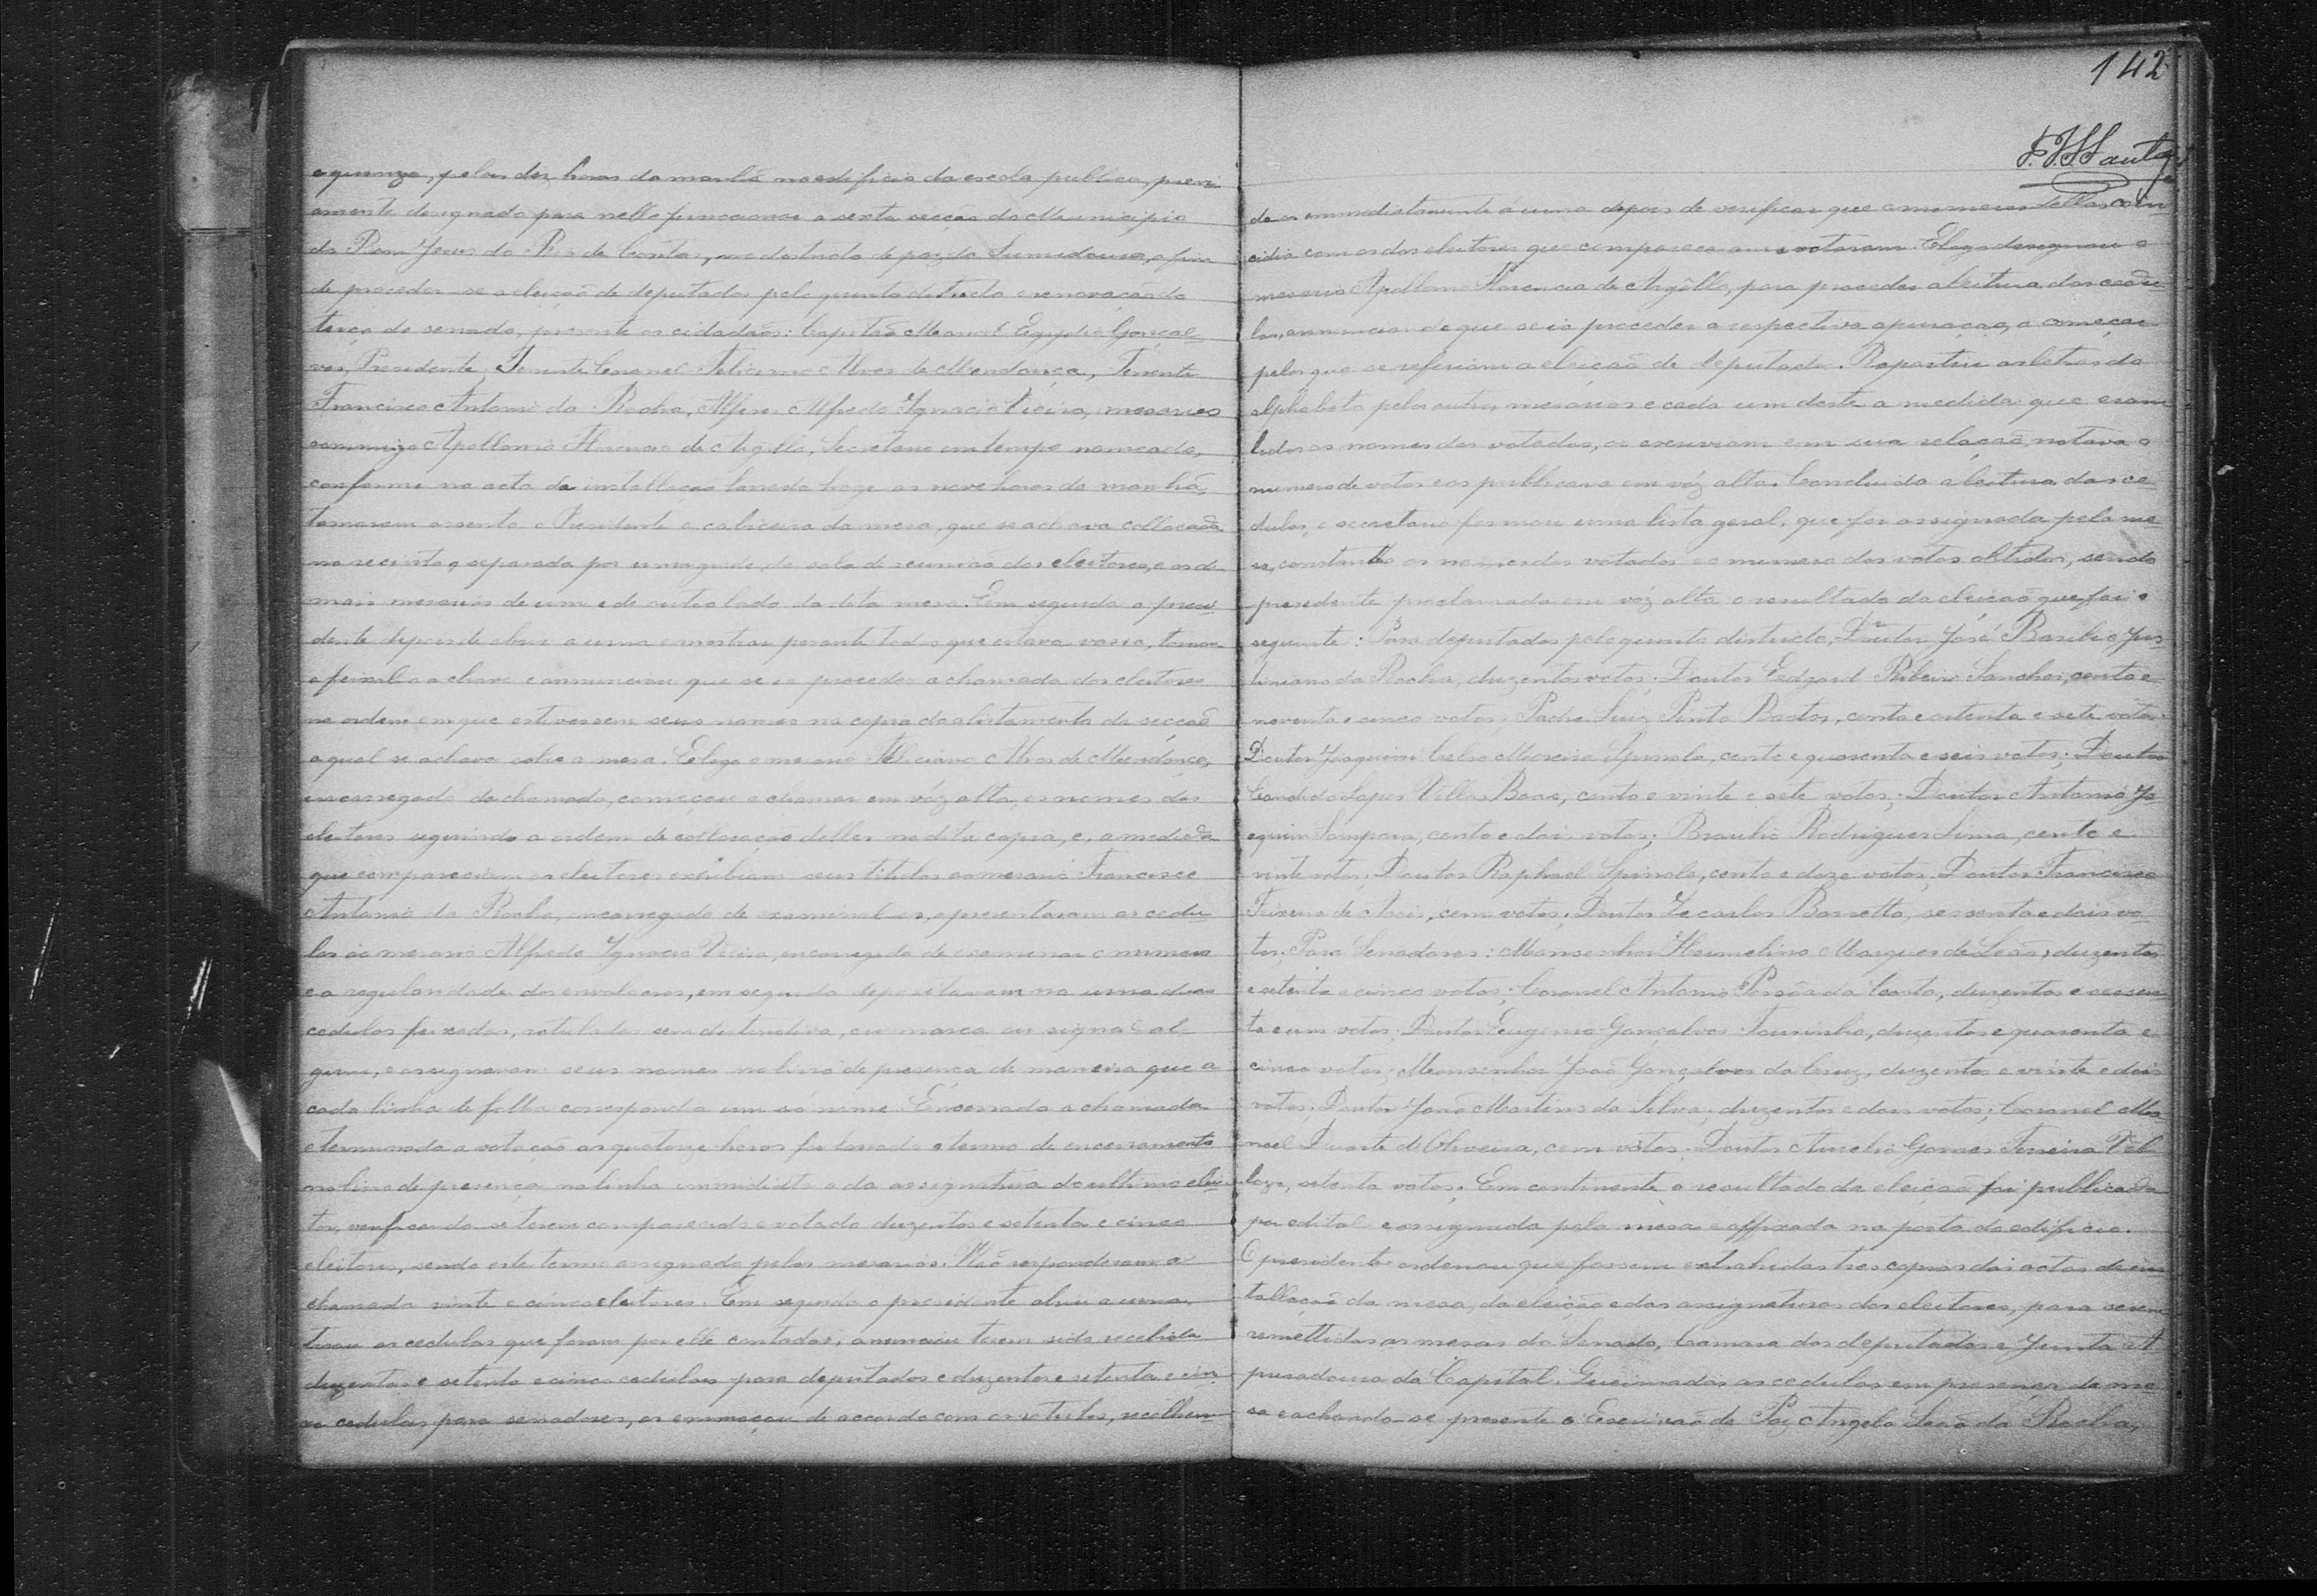 e quinze, pelas dez horas da manhã no edificio da escola publica, previ-
amente designado para nelle funccionar a sexta secção do Municipio
do Bom Jesus do Rio de Contas, no destricto de paz do Sumidouro, a fim
de proceder-se a eleição de deputados pelo quinto destricto e renovação do
terço do senado, presente os cidadãos: Capitão Manoel Egydio Gonçal-
ves, Presidente, Tenente Coronel Feliciano Alves de Mendonça, Tenente
Francisco Antonio da Rocha, Alferes Alfredo Ignacio Vieira, mesarios
commigo Apollonio Florencio de Argollo, Secretario em tempo nomeado,
conforme na acta da installação lavrada hoje as nove horas da manhã,
tomaram assento o Presidente a cabiceira da mesa, que se achava collocada
no recinto, separada por uma grade, da sala de reunião dos eleitores, e os de-
mais mesarios de um e de outro lado da dita mesa. Em seguida o presi-
dente depois de abrir a urna e mostrar perante todos que estava vasia, tornou
a feixal-a a chave e annunciou que se ia proceder a chamada dos eleitores
na ordem em que estivessem seus nomes na copia do alistamento da secção
a qual se achava sobre a mesa. E logo o mesario Feliciano Alves de Mendonça,
encarregado da chamada, começou a chamar em vóz alta, os nomes dos
eleitores seguindo a ordem de collocação delles na dita copia, e, a medida
que compareciam os eleitores exhibiam seus titulos ao mesario Francisco
Antonio da Rocha, encarregado de examinal-os, apresentaram as cedu-
las ao mesario Alfredo Ignacio Vieira, encarregado de examinar o numero
e a regularidade dos envolucros, em seguida depositavam na urna duas
cedulas feixadas, rotuladas sem destinctivo, ou marca ou signal al-
gum, e assignavam seus nomes no livro de presença de maneira que a
cada linha de folha corresponda um só nome. Encerrada a chamada
e terminada a votação as quatorze horas foi lavrado o termo de encerramento
no livro de presença na linha immidiata a da assignatura do ultimo elei-
tor, verificando-se terem comparecido e votado duzentos e setenta e cinco
eleitores, sendo este termo assignado pelos mesarios. Não responderam a
chamada vinte e cinco eleitores. Em seguida o presidente abriu a urna,
tirou as cedulas que foram por elle contadas, annunciou terem sido recebida
duzentas e setenta e cinco cedulas para deputados e duzentos e setenta e cin-
co cedulas para senadores, as emmaçou de accordo com os rotulos, recolhen-
142
do-as immediatamente á urna depois de verificar que o numero dellas coin-
cidia com os dos eleitores que compareceram e votaram. E logo designou o
mesario Apollonio Florencio de Argôllo, para proceder a leitura das cedu-
las, annunciando que se ia proceder a respectiva apuração, a começar
pelos que se referiam a eleição de deputado. Repartiu as letras do
alphabeto pelos outros mesarios e cada um deste a medida que eram
lidos os nomes dos votados, os escreviam em sua relação, notava o
numero de votos e os publicava em vóz alta. Concluida a leitura das ce-
dulas, o secretario formou uma lista geral, que foi assignada pela me-
sa, constante os nomes dos votados e o numero dos votos obtidos, sendo
presidente proclamada em vóz alta o resultado da eleição que foi o
seguinte: Para deputados pelo quinto districto, Doutor José Basilio Jus-
tiniano da Rocha, duzentos votos; Doutor Edgard Ribeiro Sanches, cento e
noventa e cinco votos; Padre Luiz Pinto Bastos, cento e oitenta e sete votos;
Doutor Joaquim Celso Moreira Spinola, cento e quarenta e seis votos; Doutor
Candido Lopes Villas Boas, cento e vinte e sete votos; Doutor Antonio Jo-
aquim Sampaio, cento e dois votos; Braulio Rodrigues Lima, cento e
vinte votos; Doutor Raphael Spinola, cento e doze votos; Doutor Francisco
Teixeira de Assis, cem votos; Doutor Barretto, sessenta e dois vo-
tos; Para Senadores: Monsenhor Hermelino Marques de Leão, duzentos
e setenta e cinco votos; Coronel Antonio Pessôa da Costa, duzentos e sessen-
ta e um votos; Doutor Eugenio Gonçalves Tourinho, duzentos e quarenta e
cinco votos; Monsenhor João Gonçalves da Cruz, duzentos e vinte e dois
votos; Doutor João Martins da Silva, duzentos e dois votos; Coronel Ma-
noel Duarte de Oliveira, cem votos; Doutor Aurelio Gomes Ferreira Vel-
loso, setenta votos; Em continente o resultado da eleição foi publicado
por edital e assignado pela mesa e affixado na porta do edificio.
O presidente ordenou que fossem extrahidas tres copias das actas da ins-
tallação da mesa, da eleição e das assignaturas dos eleitores, para serem
remettidas as mesas do Senado, Camara dos deputados e Junta A-
puradoura da Capital. Queimadas as cedulas em presença da me-
sa e achando-se presente o Escrivão de Paz Angelo Leão da Rocha,